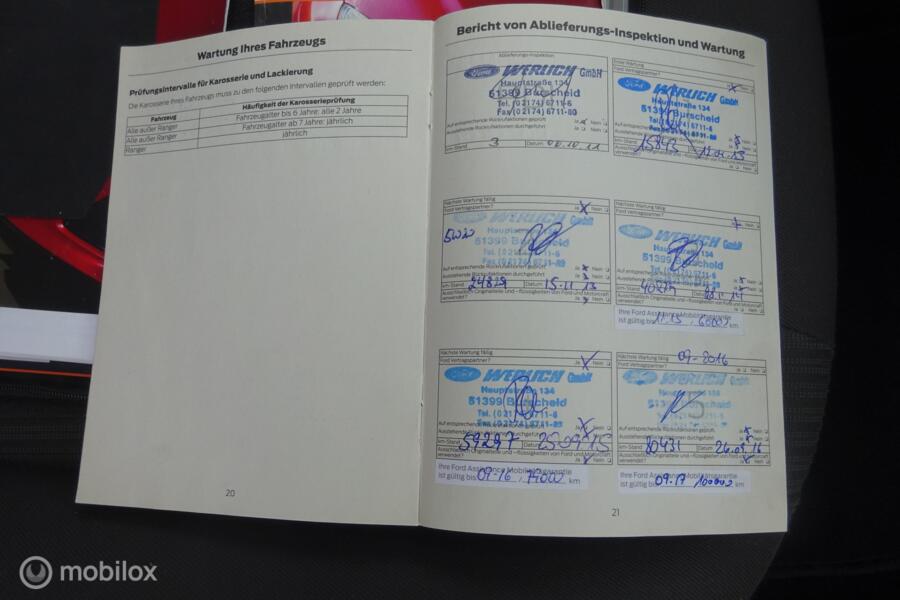 Wartung Ihres Fahrzeugs
Prüfungsintervalle für Karosserie und Lackierung
Die Karosserie Ihres Fahrzeugs muss zu den folgenden Intervallen geprüft werden:
Fahrzeug Häufigkeit der Karosserieprüfung
Alle außer Ranger Fahrzeugalter bis 6 Jahre: alle 2 Jahre
Alle außer Ranger Fahrzeugalter ab 7 Jahre: jährlich
Ranger jährlich
20
Bericht von Ablieferungs-Inspektion und Wartung
Ablieferungs-Inspektion
Ford WERLICH GmbH
Hauptstraße 134
51399 Burscheid
Tel. (02174) 6711-6
Fax
Ausstehende Rückrufaktionen durchgeführt
km-Stand 3 Datum
Erste Wartung
Ford Vertragspartner?
Ford WERLICH GmbH
Hauptstraße 134
51399 Burscheid
km-Stand 15843
verwendet?
Nächste Wartung fällig
Ford Vertragspartner? Ja Nein
WERLICH GmbH
5W20
Hauptstraße 134
51399 Burscheid
Tel. (02174) 6711-6
Fax (02174) 6711-89
Auf entsprechende Rückrufaktionen geprüft Ja Nein
Ausstehende Rückrufaktionen durchgeführt Ja Nein
km-Stand Datum 15.11.13
Ausschließlich Originalteile und -flüssigkeiten von Ford und Motorcraft
verwendet? Ja Nein
Nächste Wartung fällig
Ford Vertragspartner? Nein
WERLICH GmbH
Hauptstraße 134
51399 Burscheid
Tel. (02174) 6711-6
Auf entsprechende Rückrufaktionen geprüft
Ausstehende Rückrufaktionen durchgeführt
km-Stand Datum
Ausschließlich Originalteile und -flüssigkeiten von Ford und Motorcraft
verwendet? Ja Nein
Ihre Ford Assistance Mobilitätsgarantie
ist gültig bis 11.15, 60000 km
Nächste Wartung fällig
Ford Vertragspartner? Ja Nein
Ford WERLICH GmbH
Hauptstraße 134
51399 Burscheid
Tel. (02174) 6711-6
Auf entsprechende Rückrufaktionen geprüft Ja Nein
Ausstehende Rückrufaktionen durchgeführt Ja Nein
km-Stand 59297 Datum 25.09.15
Ausschließlich Originalteile und -flüssigkeiten von Ford und Motorcraft
verwendet? Ja Nein
Ihre Ford Assistance Mobilitätsgarantie
ist gültig bis 09-16, km
Nächste Wartung fällig 09-2016
Ford Vertragspartner? Ja Nein
WERLICH GmbH
51399 Burscheid
Auf entsprechende Rückrufaktionen geprüft Ja Nein
Ausstehende Rückrufaktionen durchgeführt Ja Nein
km-Stand Datum
Ausschließlich Originalteile und -flüssigkeiten von Ford und Motorcraft
verwendet? Ja Nein
Ihre Ford Assistance Mobilitätsgarantie
ist gültig bis 09.17 100000 km
21
mobilox